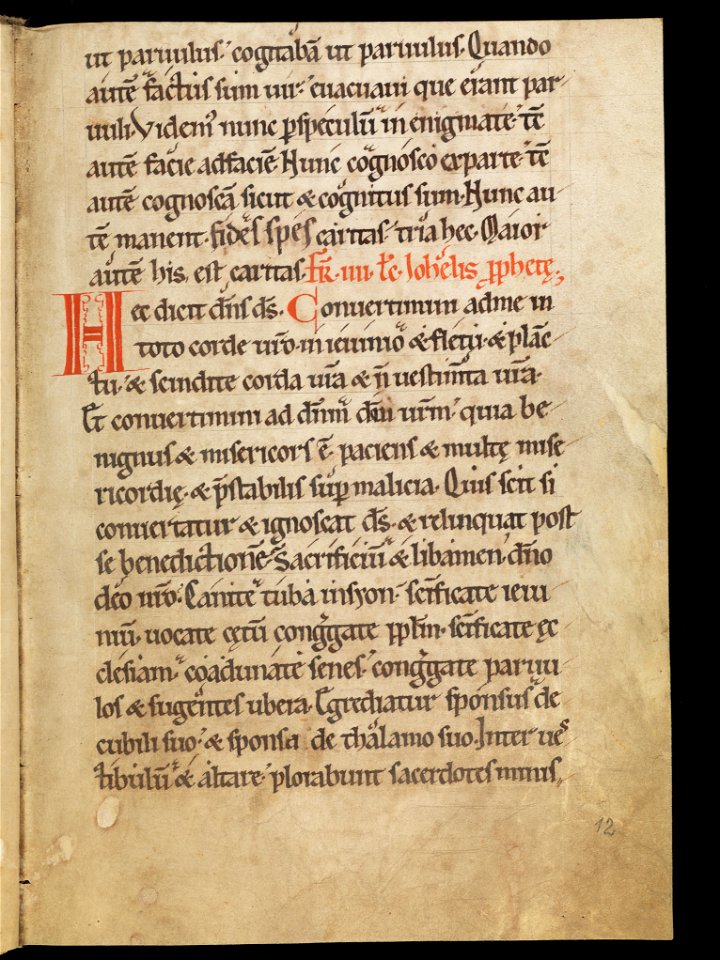 ut paruulus. cogitabā ut paruulus. Quando
autē factus sum uir. euacuaui que erant par-
uuli. Videmꝰ nunc ꝑ speculū in enigmate. tē
autē facie ad faciē. Nunc cognosco ex parte. tē
autē cognoscā sicut & cognitus sum. Nunc au-
tē manent. fides spes caritas. tria hec. Maior
autē his est caritas. Fr̄. iiii. lēc. Johelis ꝓphetę.
Hec dicit dn̄s ds̄. Conuertimini ad me in
toto corde ur̄o. in ieiunio & fletu. & planc-
tu. & scindite corda ur̄a & n̄ uestim̄ta ur̄a.
Et conuertimini ad dn̄m dm̄ ur̄m. quia be-
nignus & misericors ē. paciens & multę mise-
ricordię. & p̄stabilis sup̄ malicia. Quis scit si
conuertatur & ignoscat ds̄. & relinquat post
se benedictionē. Sacrificiū & libamen dn̄o
deo ur̄o. Canite tuba in syon. sc̄ificate ieiu-
niū. uocate cętū congregate ppl̄m. sc̄ificate ęc-
clesiam. coadunate senes. congregate paruu-
los & sugentes ubera. Egrediatur sponsus de
cubili suo. & sponsa de thalamo suo. Inter ues-
tibulū & altare. plorabunt sacerdotes minis-
12